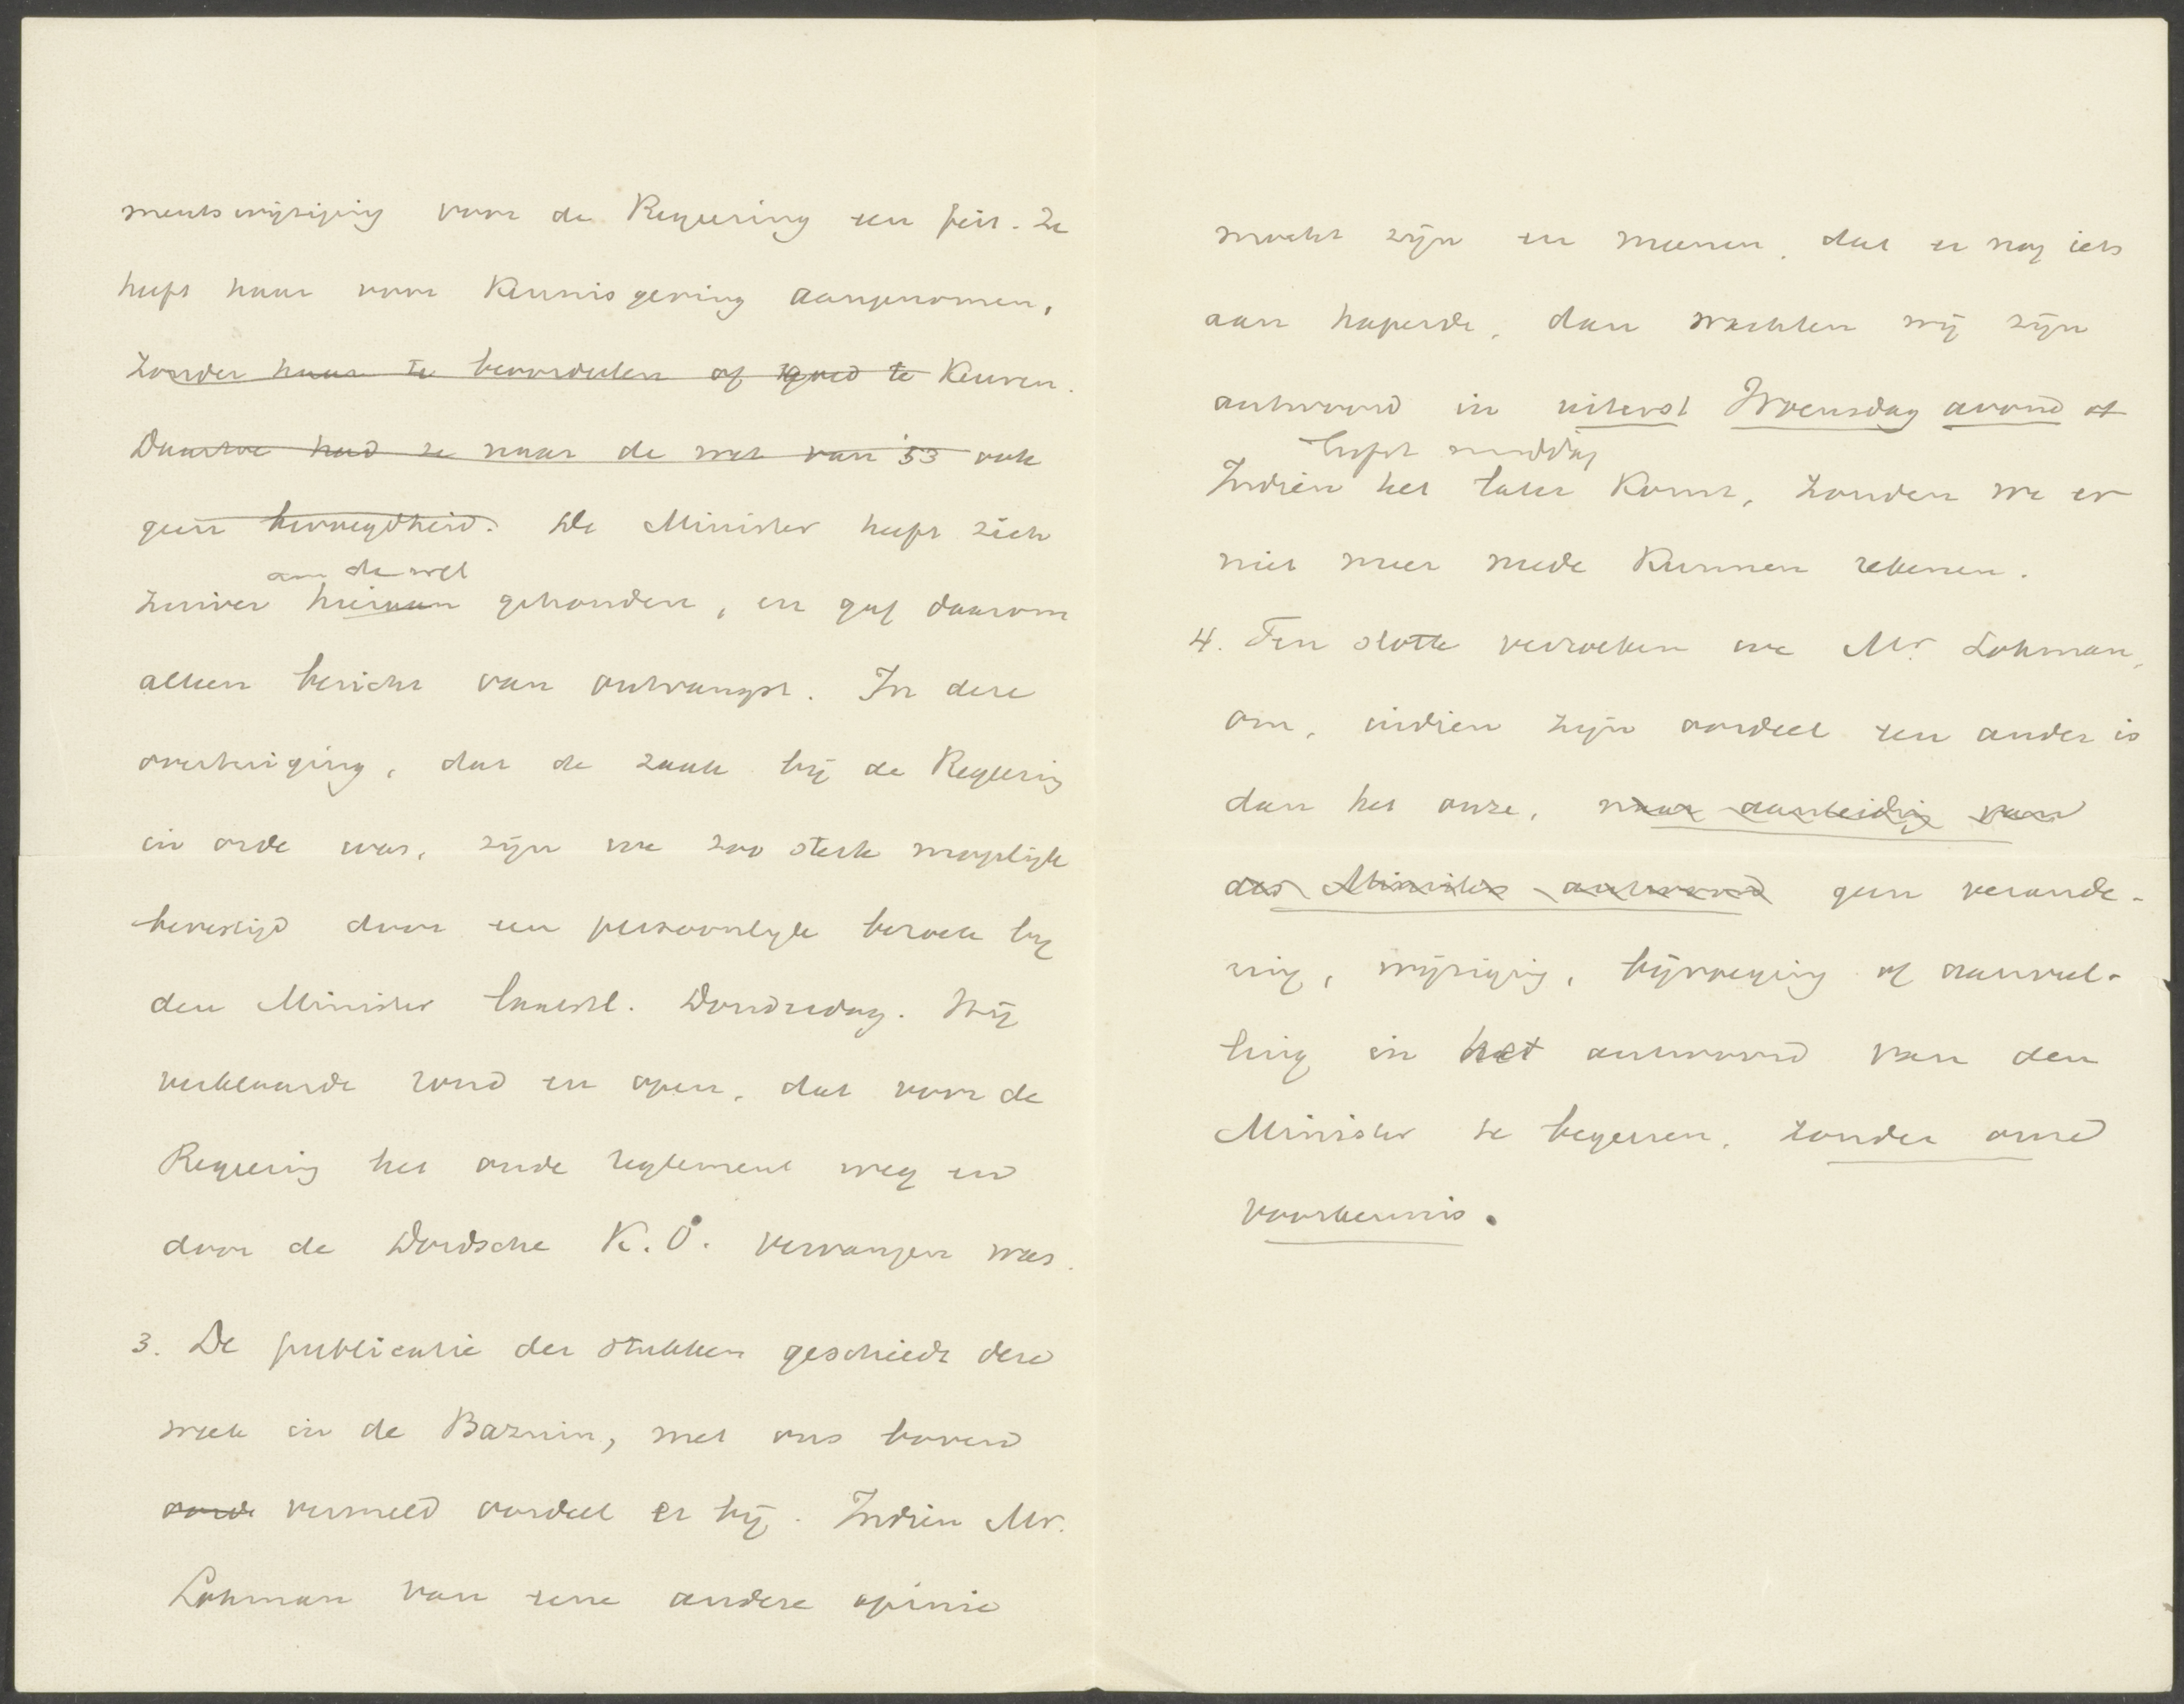 mentswijziging voor de Regeering een feit. Ze
heeft haar voor kennisgeving aangenomen,
zonder haar te beoordeelen of goed te keuren.
Daartoe had ze naar de wet van '53 ook
geen bevoegdheid. De Minister heeft zich
aan de wet
zuiver hieraan gehouden, en gaf daarom
alleen bericht van ontvangst. In deze
overtuiging, dat de zaak bij de Regeering
in orde was, zijn we zoo sterk mogelijk
bevestigd door een persoonlijk bezoek bij
den Minister laatstl. Donderdag. Hij
verklaarde rond en open, dat voor de
Regeering het oude reglement weg en
door de Dordsche K.O. vervangen was.
3. De publicatie der stukken geschiedt deze
week in de Bazuin, met ons boven
vermeld oordeel er bij. Indien Mr.
Lohman van eene andere opinie
mocht zijn en meenen, dat er nog iets
aan haperde, dan wachten wij zijn
antwoord in uiterst Woensdag avond of
liefst middag
Indien het later komt, zouden we er
niet meer mede kunnen rekenen.
4. Ten slotte verzoeken we Mr. Lohman,
om, indien zijn oordeel een ander is
dan het onze, naar aanleiding van
des Ministers antwoord geen verande-
ring, wijziging, bijvoeging of aanvul-
ling in het antwoord van den
Minister te begeeren, zonder onze
voorkennis.